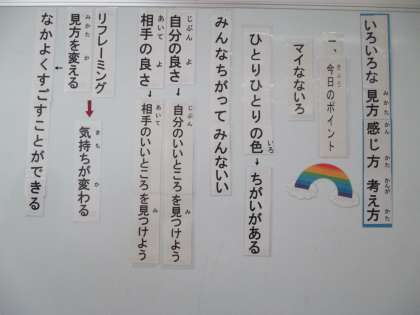 いろいろな 見方 感じ方 考え方
一、今日のポイント
マイなないろ
ひとりひとりの色→ちがいがある
みんなちがって みんないい
自分の良さ→自分のいいところを見つけよう
相手の良さ→相手のいいところを見つけよう
リフレーミング
見方を変える→気持ちが変わる
なかよくすごすことができる